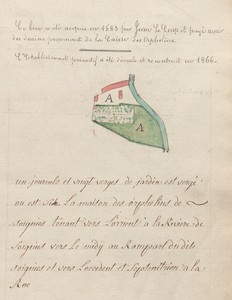 Ce bien a été acquis en 1583 par Jean Le Loup et payé avec
des deniers provenant de la Caisse des Orphelins.
L'Etablissement primitif a été démoli et reconstruit en 1866.
A
A
un journelz et vingt verges de jardin est verge
ou est la maison des orphelins de
soignies tenant vers Lorient a la Riviere de
soignies vers le midy au Rampart du dits
soignies et vers Locedent et Septentrion a la
Rue